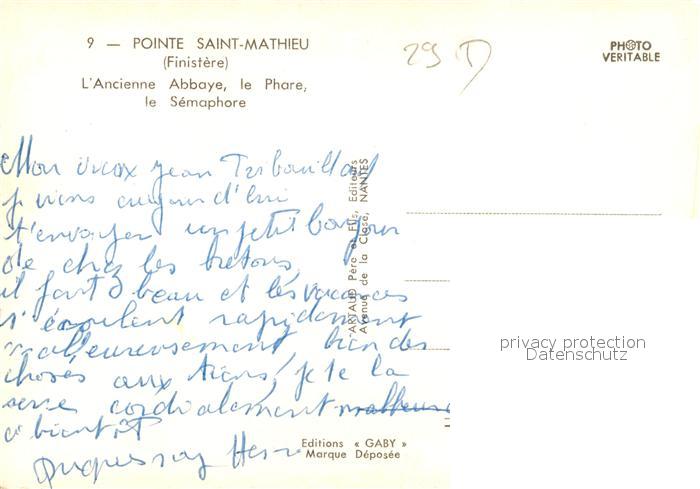 9 — POINTE SAINT-MATHIEU
(Finistère)
L'Ancienne Abbaye, le Phare,
le Sémaphore
29
PHOTO
VERITABLE
Mon vieux Jean
je viens aujourd'hui
t'envoyer un petit bonjour
de chez les bretons,
il fait beau et les vacances
s'écoulent rapidement
malheureusement bien des
choses aux tiens, je te la
serre cordialement
a bientôt
ARTAUD Père et Fils, Editeurs
Avenue de la Close, NANTES
privacy protection
Datenschutz
Editions « GABY »
Marque Déposée